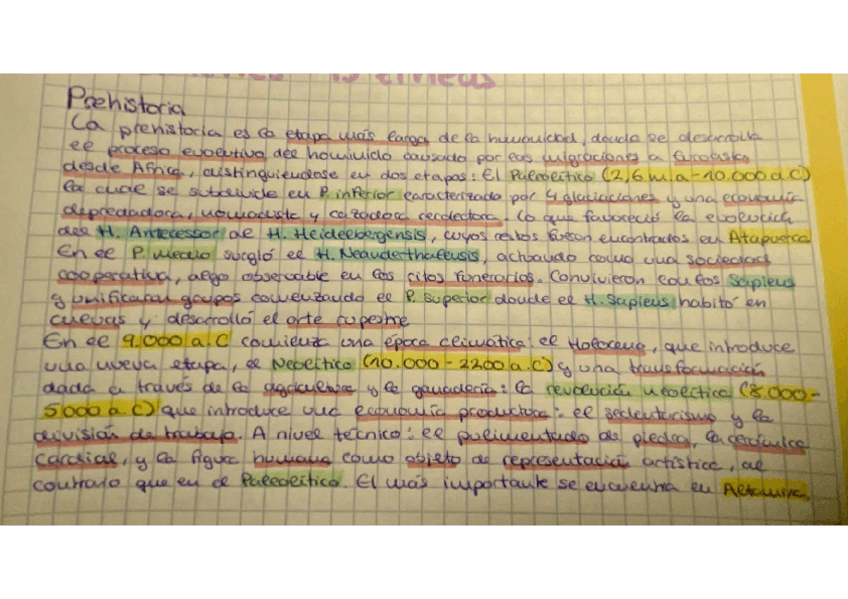 15 líneas
Prehistoria
La prehistoria es la etapa más larga de la humanidad, donde se desarrolla
el proceso evolutivo del homínido causado por las migraciones a Euroasia
desde África, distinguiéndose en dos etapas: El Paleolítico (2,6 m.a-10.000 a.C)
la cual se subdivide en P. inferior caracterizado por 4 glaciaciones y una economía
depredadora, nomadista y cazadora recolectora. Lo que favoreció la evolución
del H. Antecessor al H. Heidelbergensis, cuyos restos fueron encontrados en Atapuerca
En el P. medio surgió el H. Neanderthalensis, actuando como una sociedad
cooperativa, algo observable en los ritos funerarios. Convivieron con los Sapiens
y unificaran grupos comenzando el P. Superior donde el H. Sapiens habitó en
cuevas y desarrolló el arte rupestre
En el 9.000 a.C comienza una época climática: el Holoceno, que introduce
una nueva etapa, el Neolítico (10.000-2200 a.C) y una transformación
dada a través de la agricultura y la ganadería: la revolución neolítica (8.000-
5000 a.C) que introduce una economía productora: el sedentarismo y la
división de trabajo. A nivel técnico: el pulimentado de piedra, la cerámica
cardial, y la figura humana como objeto de representación artística, al
contrario que en el Paleolítico. El más importante se encuentra en Altamira.